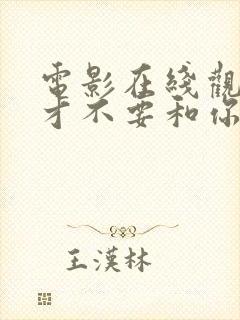 電影在綫觀
才不要和你
王漢林